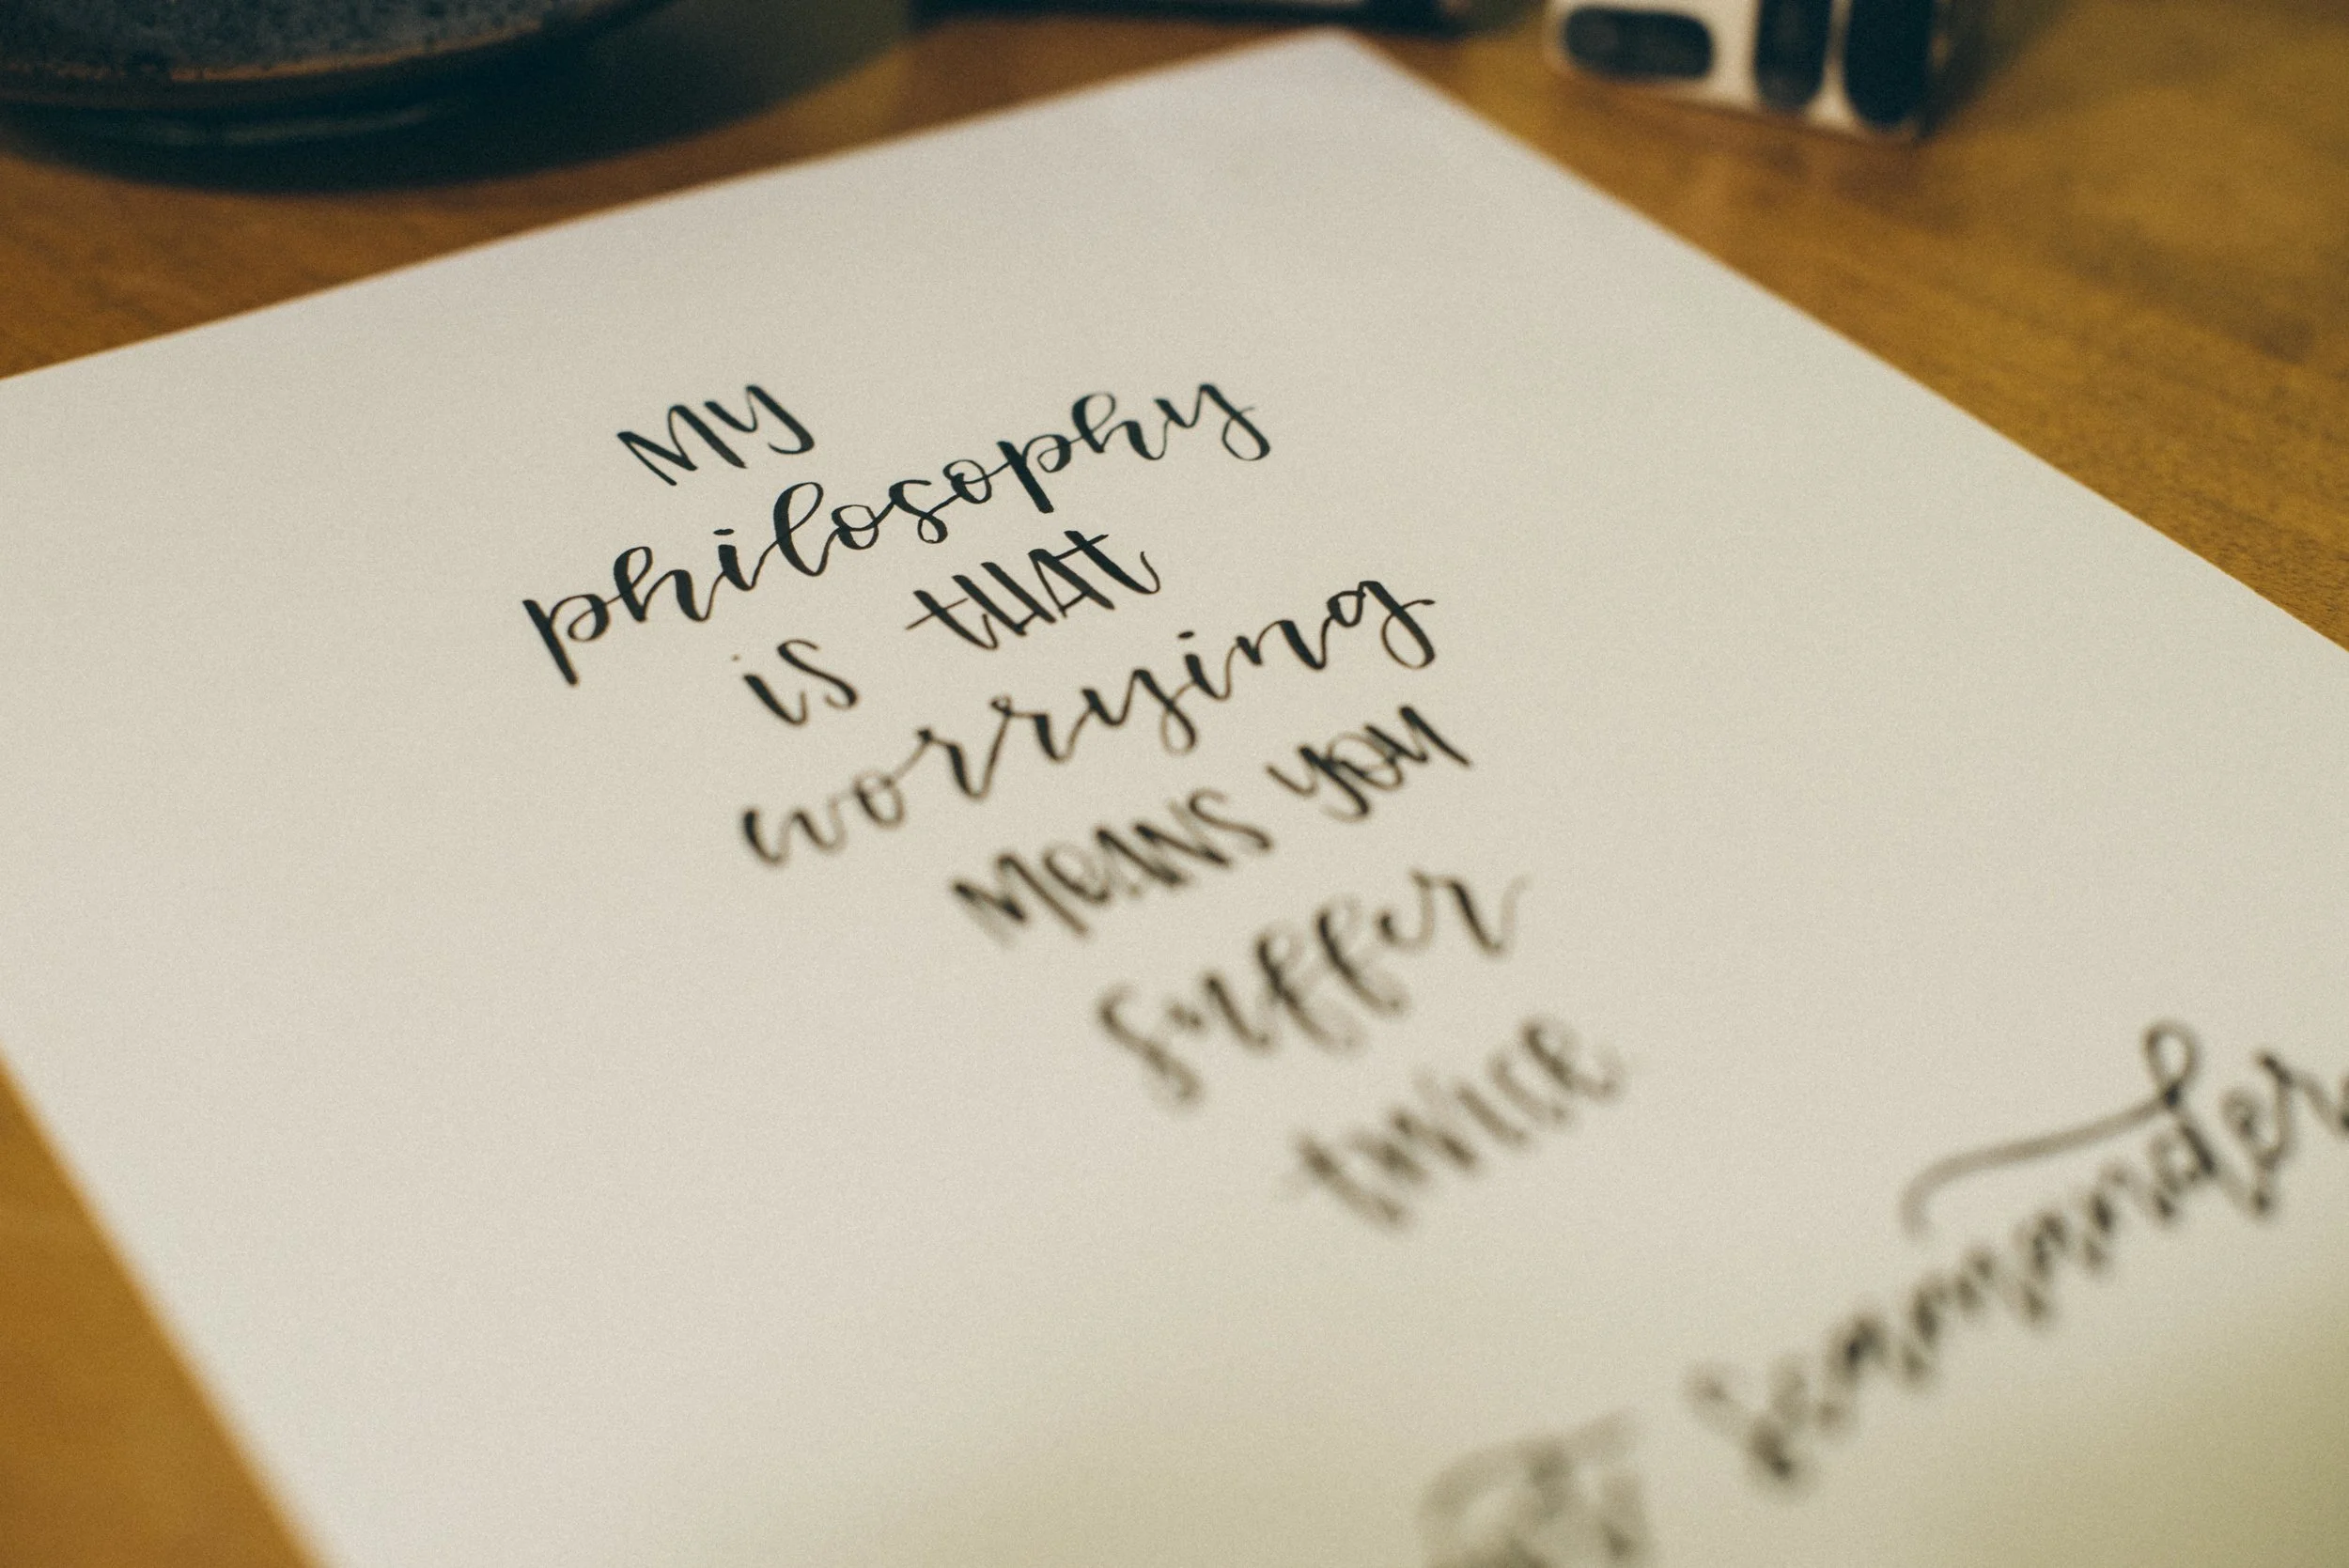 My
philosophy
is that
worrying
means you
suffer
twice
Scamander